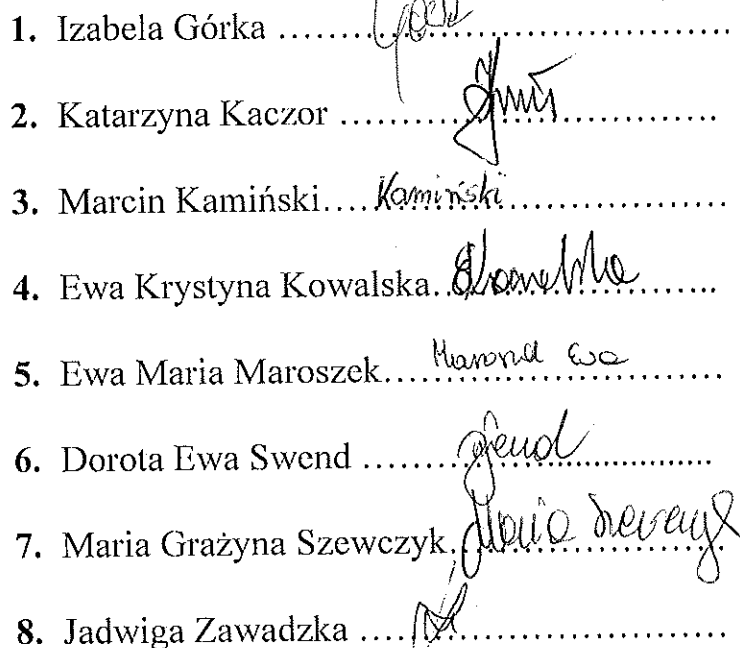 1. Izabela Górka ....................................
2. Katarzyna Kaczor ..............................
3. Marcin Kamiński.... Kamiński ....................
4. Ewa Krystyna Kowalska.. EKowalska .......
5. Ewa Maria Maroszek.... Ewa ........................
6. Dorota Ewa Swend ........ Swend ....................
7. Maria Grażyna Szewczyk. Maria Szewczyk
8. Jadwiga Zawadzka ..................................